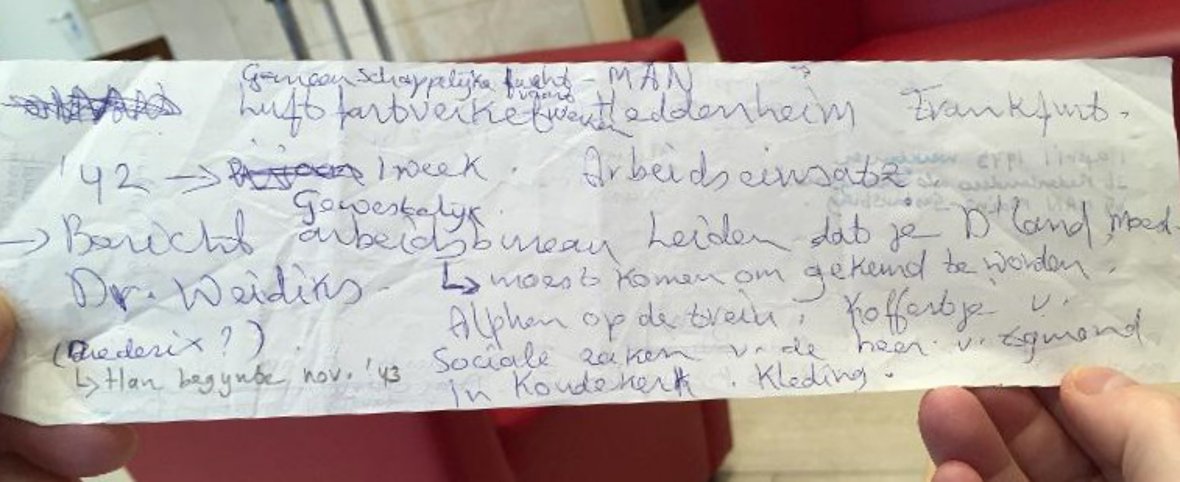 Gemeenschappelijke - MAN
Heddernheim Frankfurt.
'42 → 1 week. Arbeidseinsatz
Gewestelijk
→ Bericht arbeidsbureau Leiden dat je D land moest
Dr. Weidiks. ↳ moest komen om gekeurd te worden.
Alphen op de trein. Koffertje v.
(Diederix?) Sociale zaken v. de heer v. Egmond
↳ Han begynbe nov. '43 in Koudekerk. Kleding.